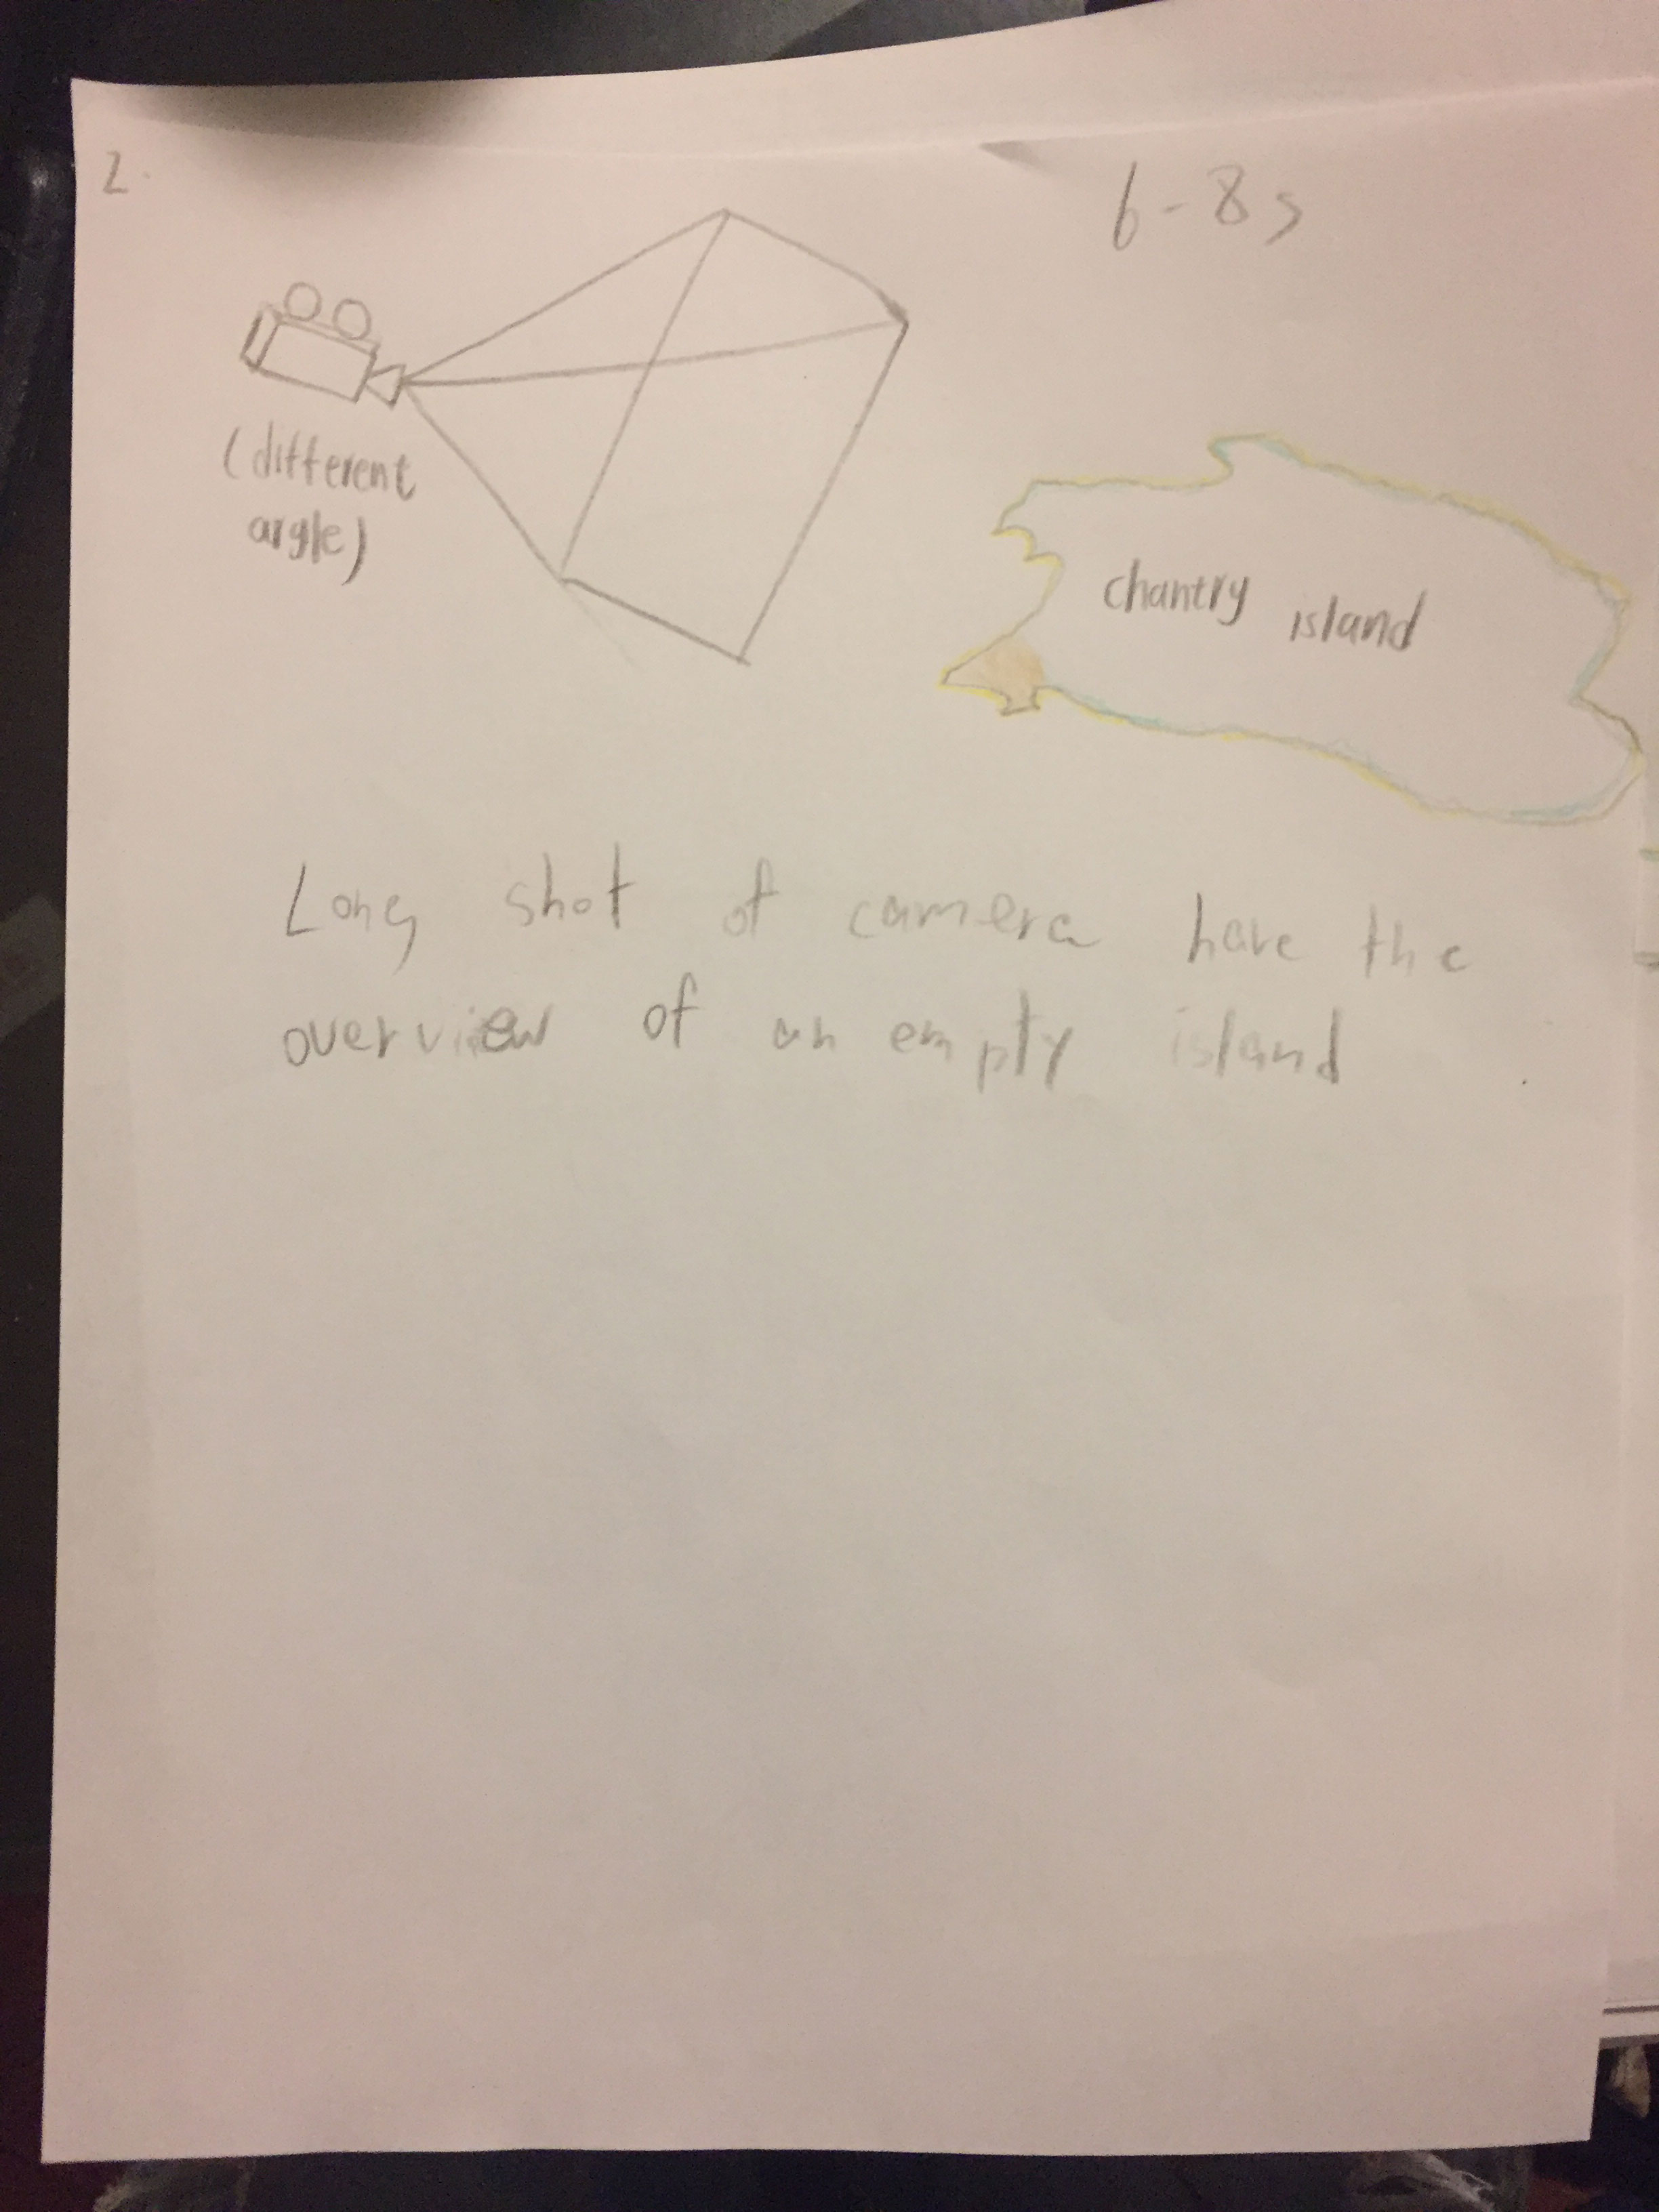 2.
6-8s
(different
angle)
chantry island
Long shot of camera have the
overview of an empty island